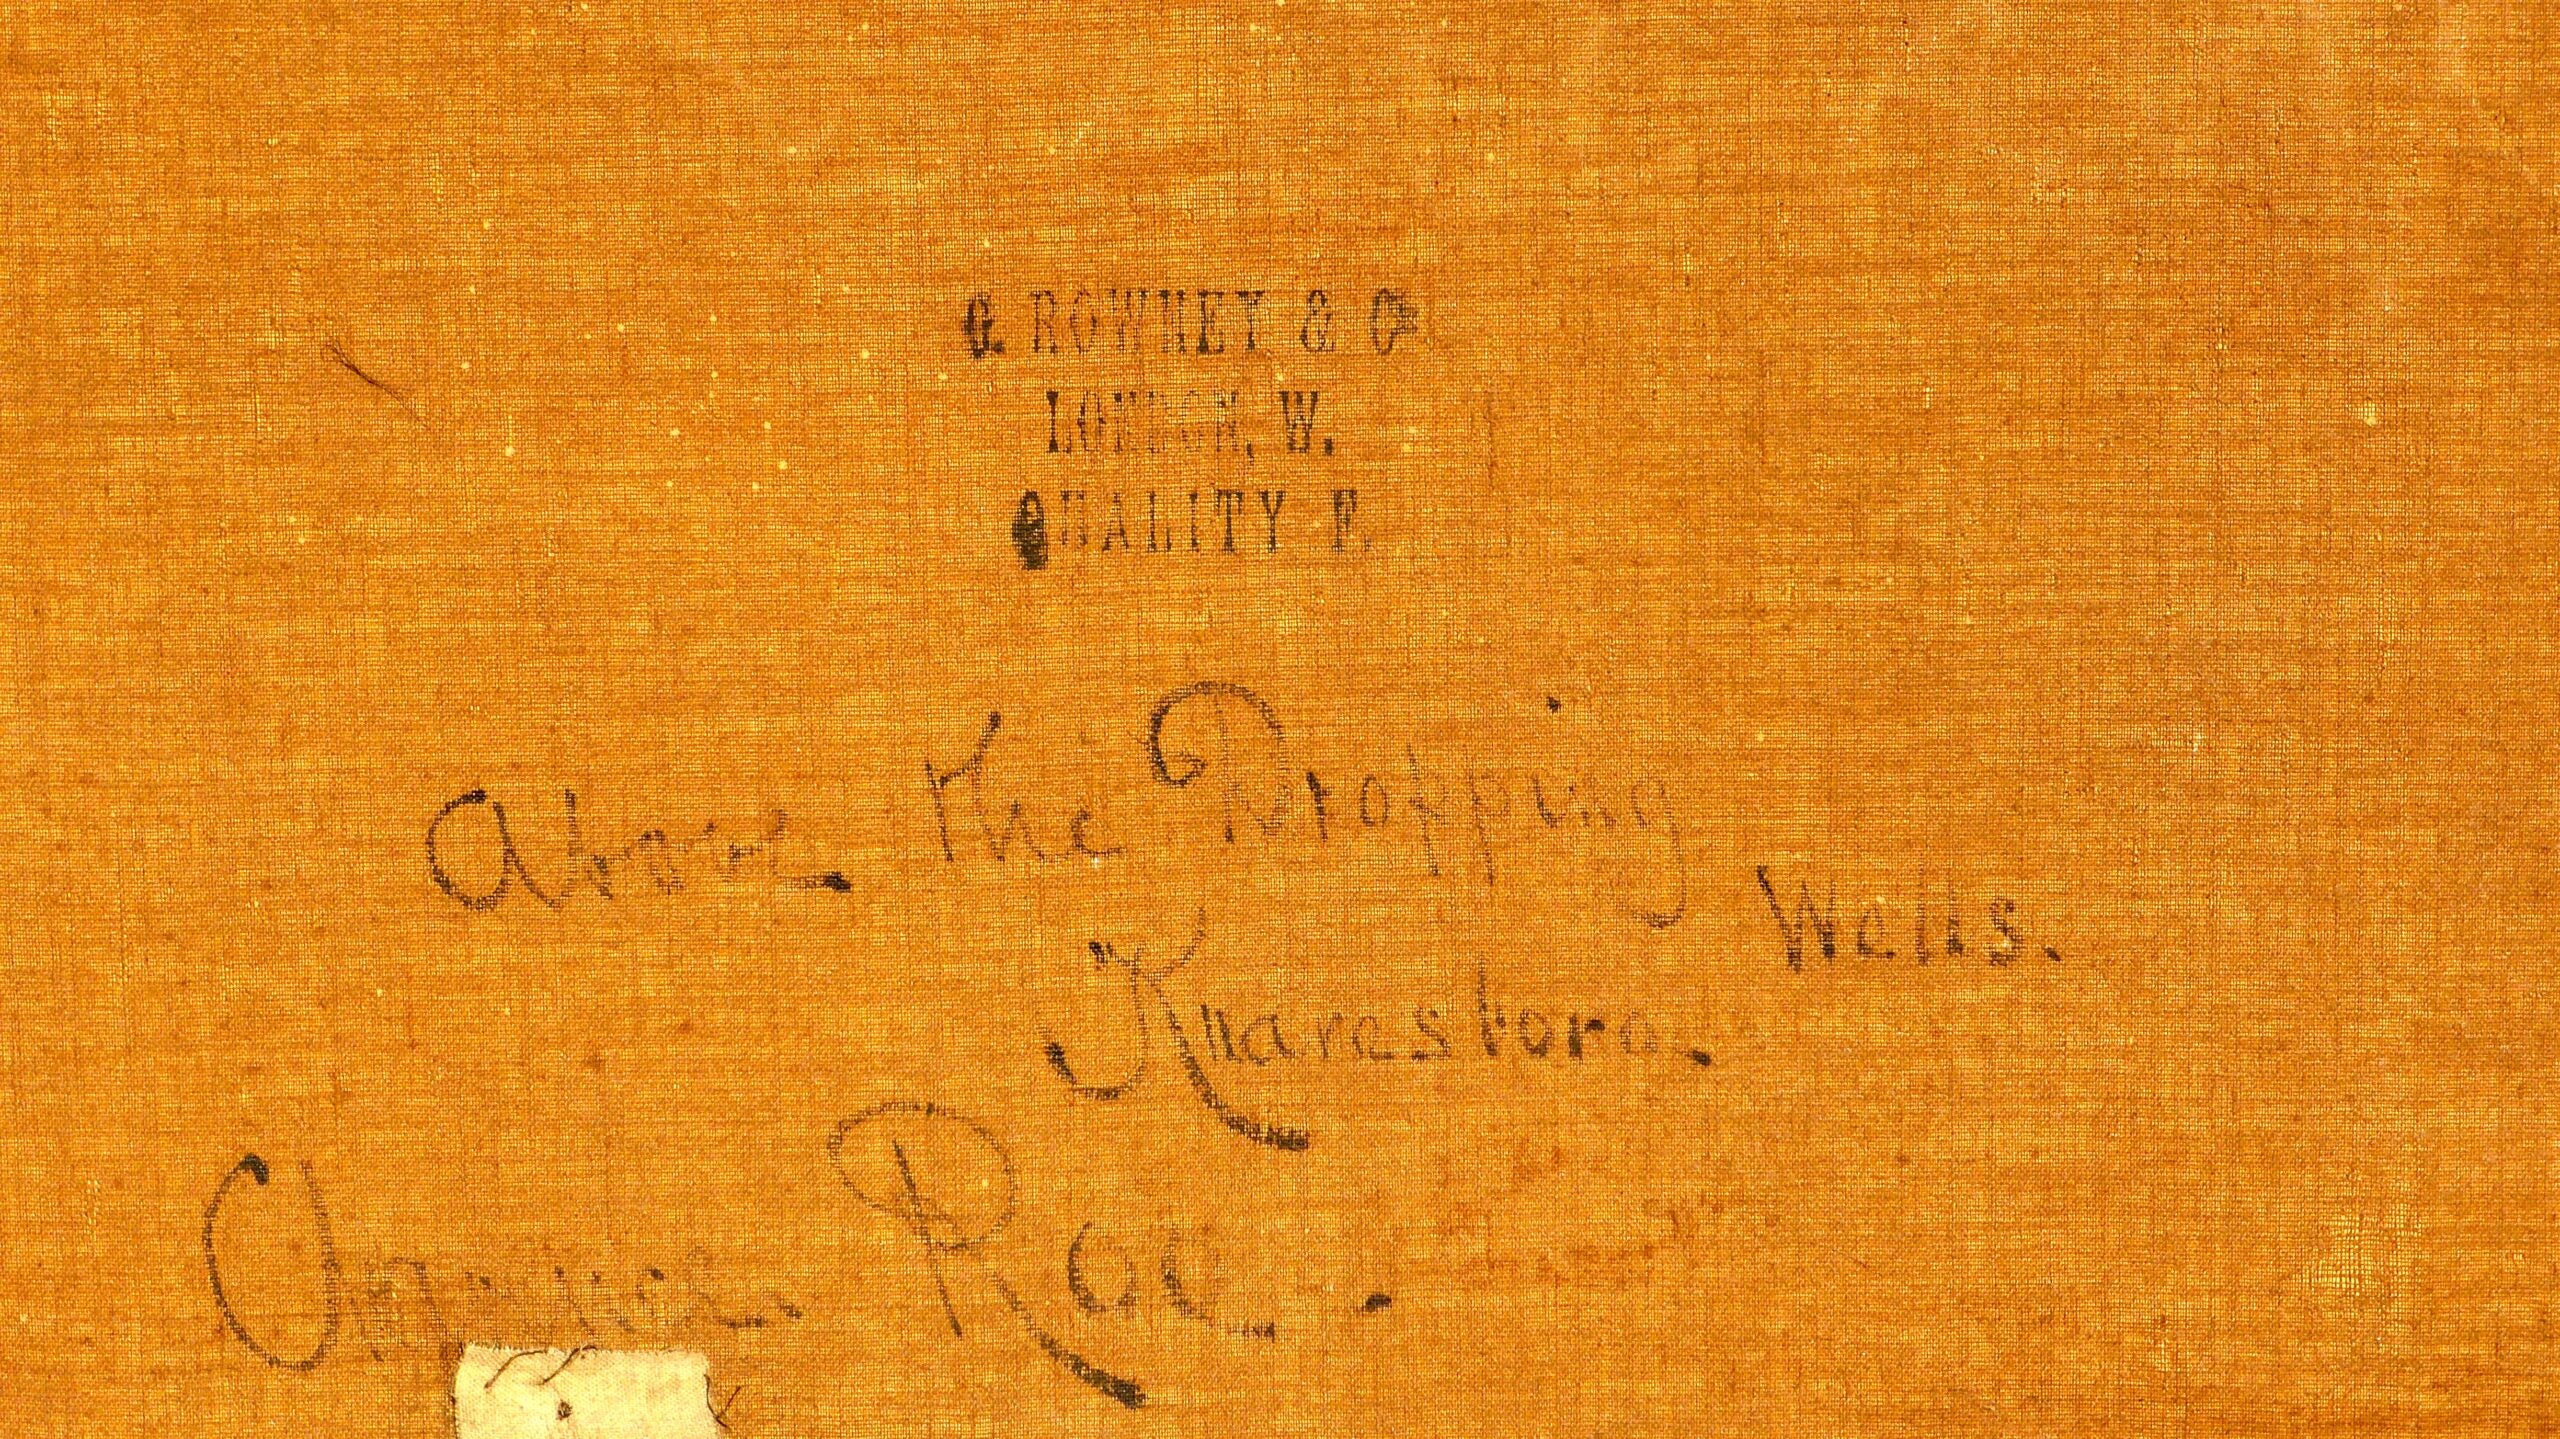 G. ROWNEY & Co
LONDON, W.
QUALITY F.
Above the Dropping
Wells.
Knaresboro.
Roe.